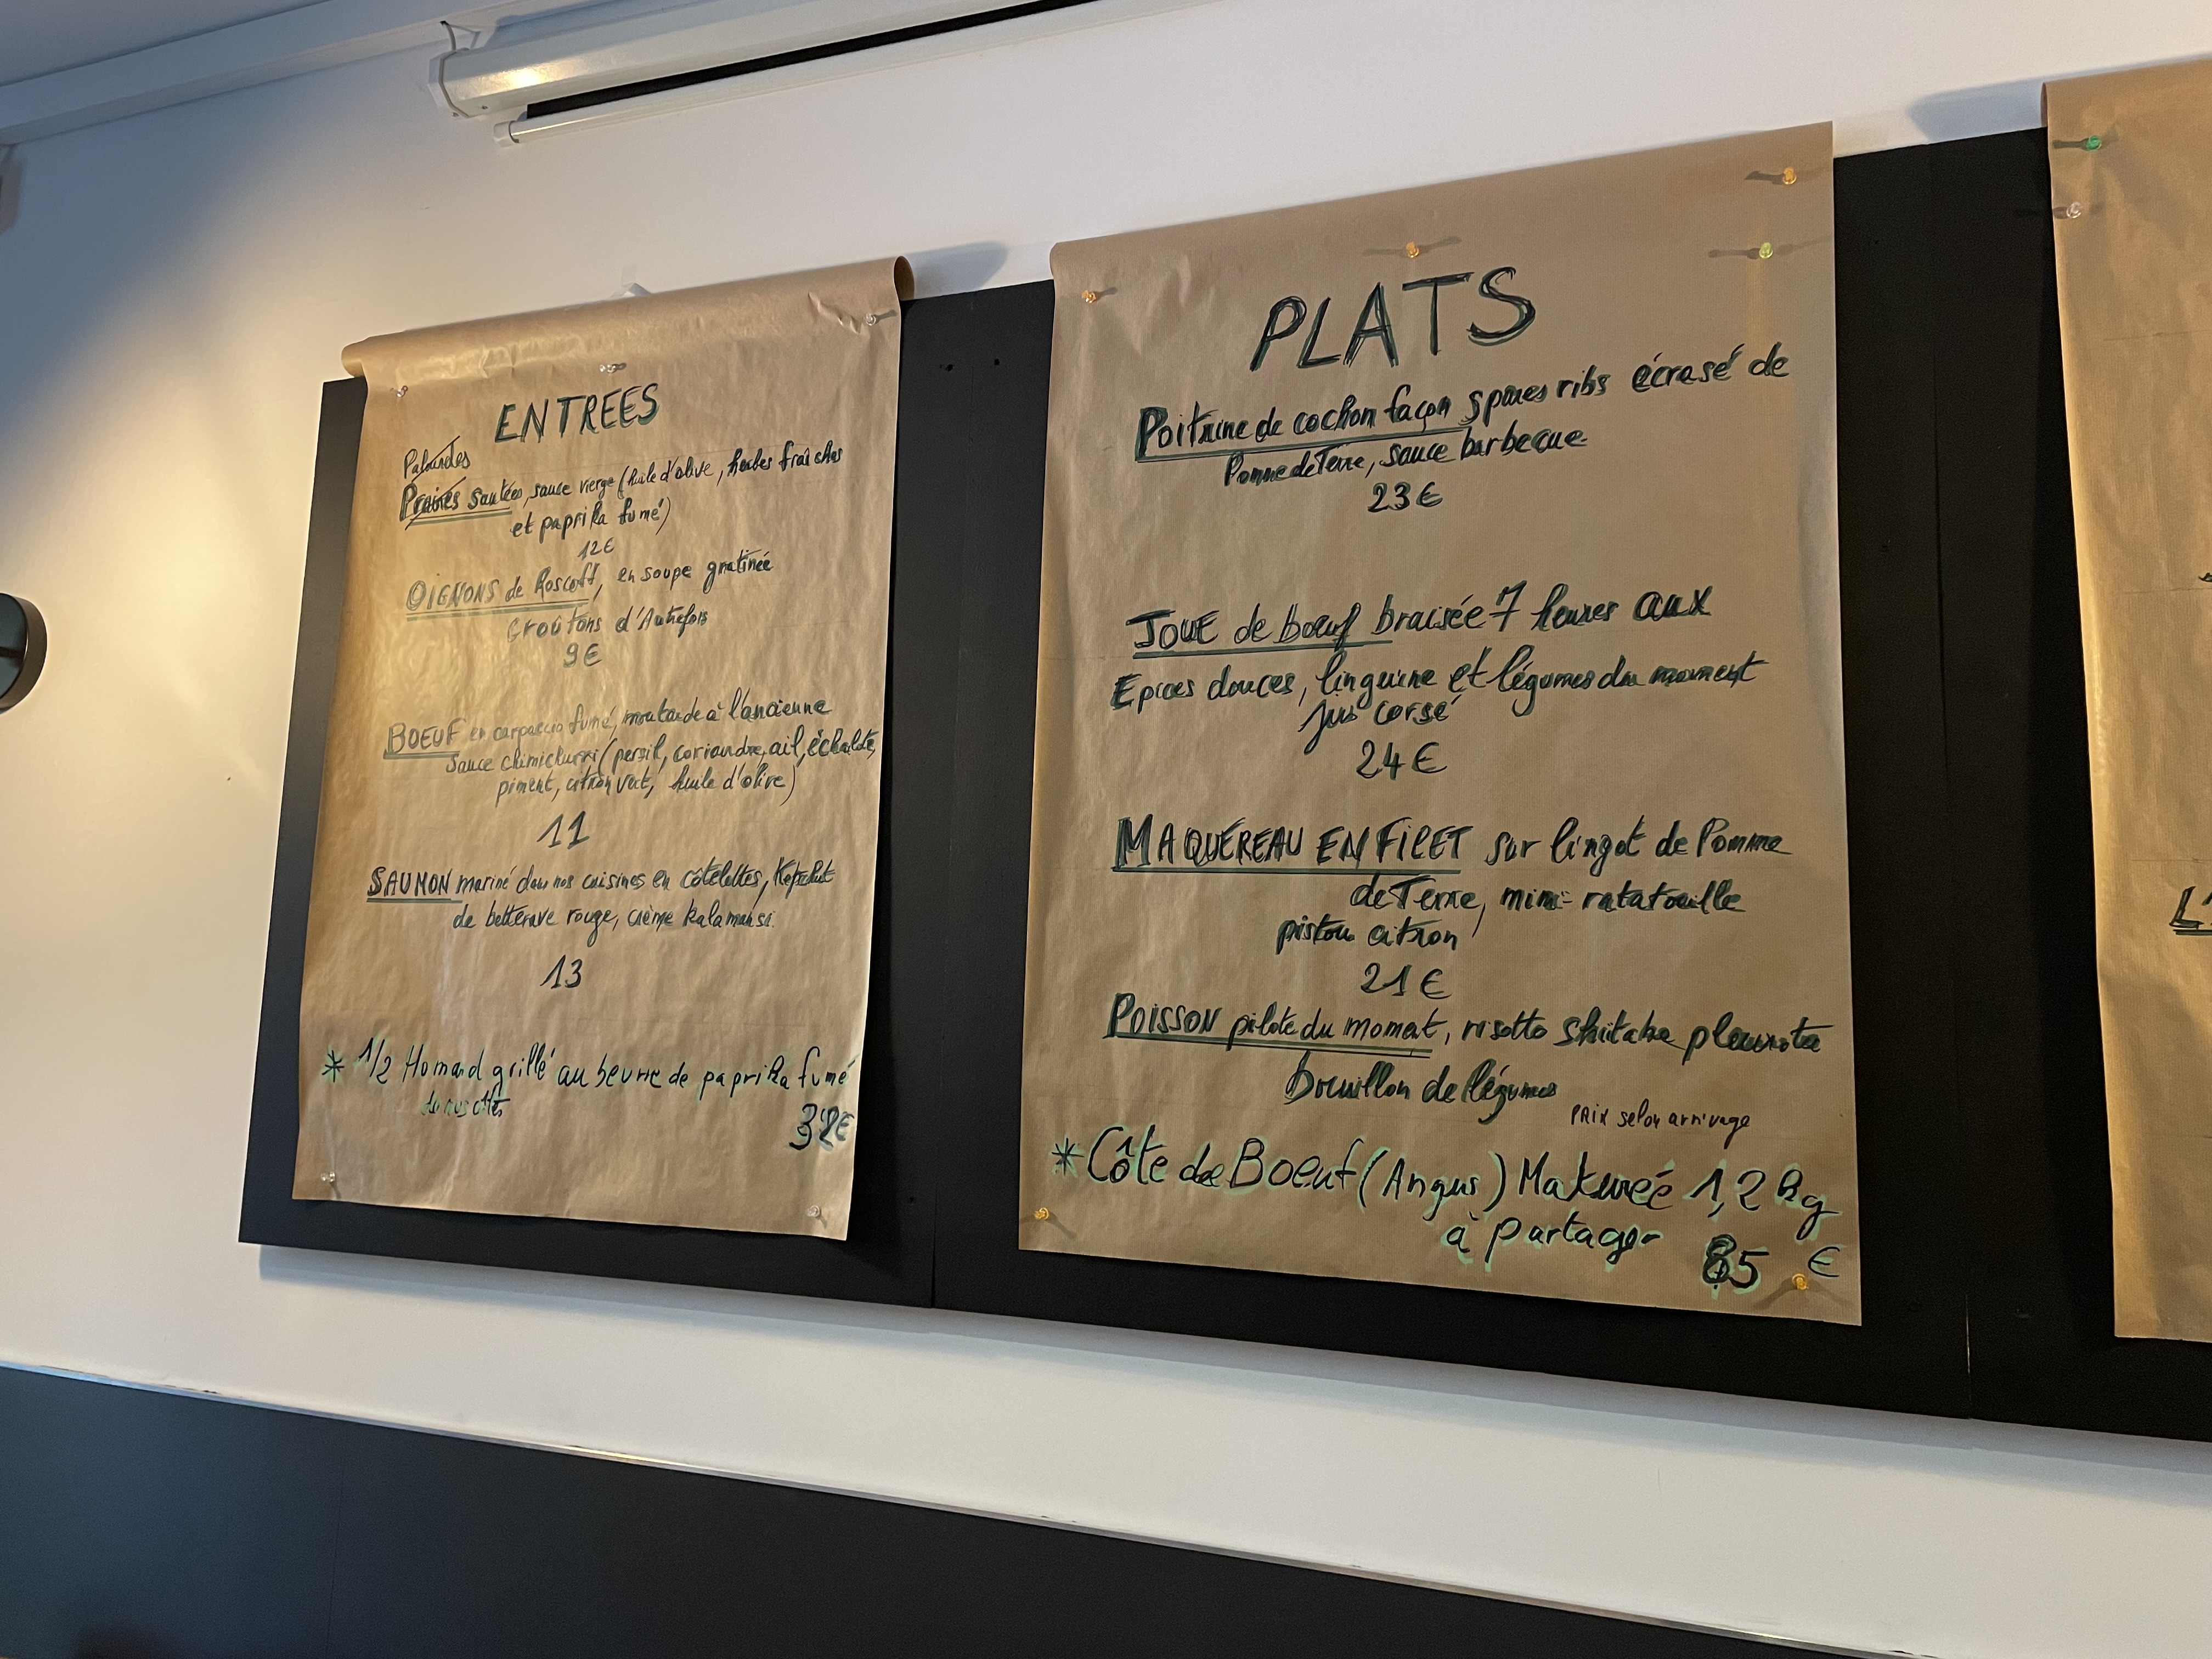 ENTREES
Palourdes
Praires sautées, sauce vierge (huile d'olive, herbes fraîches
et paprika fumé)
12€
OIGNONS de Roscoff, en soupe gratinée
Croûtons d'Autrefois
9€
BOEUF en carpaccio fumé, moutarde à l'ancienne
sauce chimichurri (persil, coriandre, ail, échalote,
piment, citron vert, huile d'olive)
11
SAUMON mariné dans nos cuisines en côtelettes,
de betterave rouge, crème kalamansi.
13
* 1/2 Homard grillé au beurre de paprika fumé
de nos côtes
€
PLATS
Poitrine de cochon façon spares ribs écrasé de
Pomme de Terre, sauce barbecue
23€
JOUE de boeuf braisée 7 heures aux
Epices douces, linguine et légumes du moment
jus corsé
24€
MAQUEREAU EN FILET sur lingot de Pomme
de Terre, mini-ratatouille
pistou citron
21€
POISSON pilote du moment, risotto shiitake pleurote
bouillon de légumes
PRIX selon arrivage
* Côte de Boeuf (Angus) Maturée 1,2 kg
à partager 85 €
L'